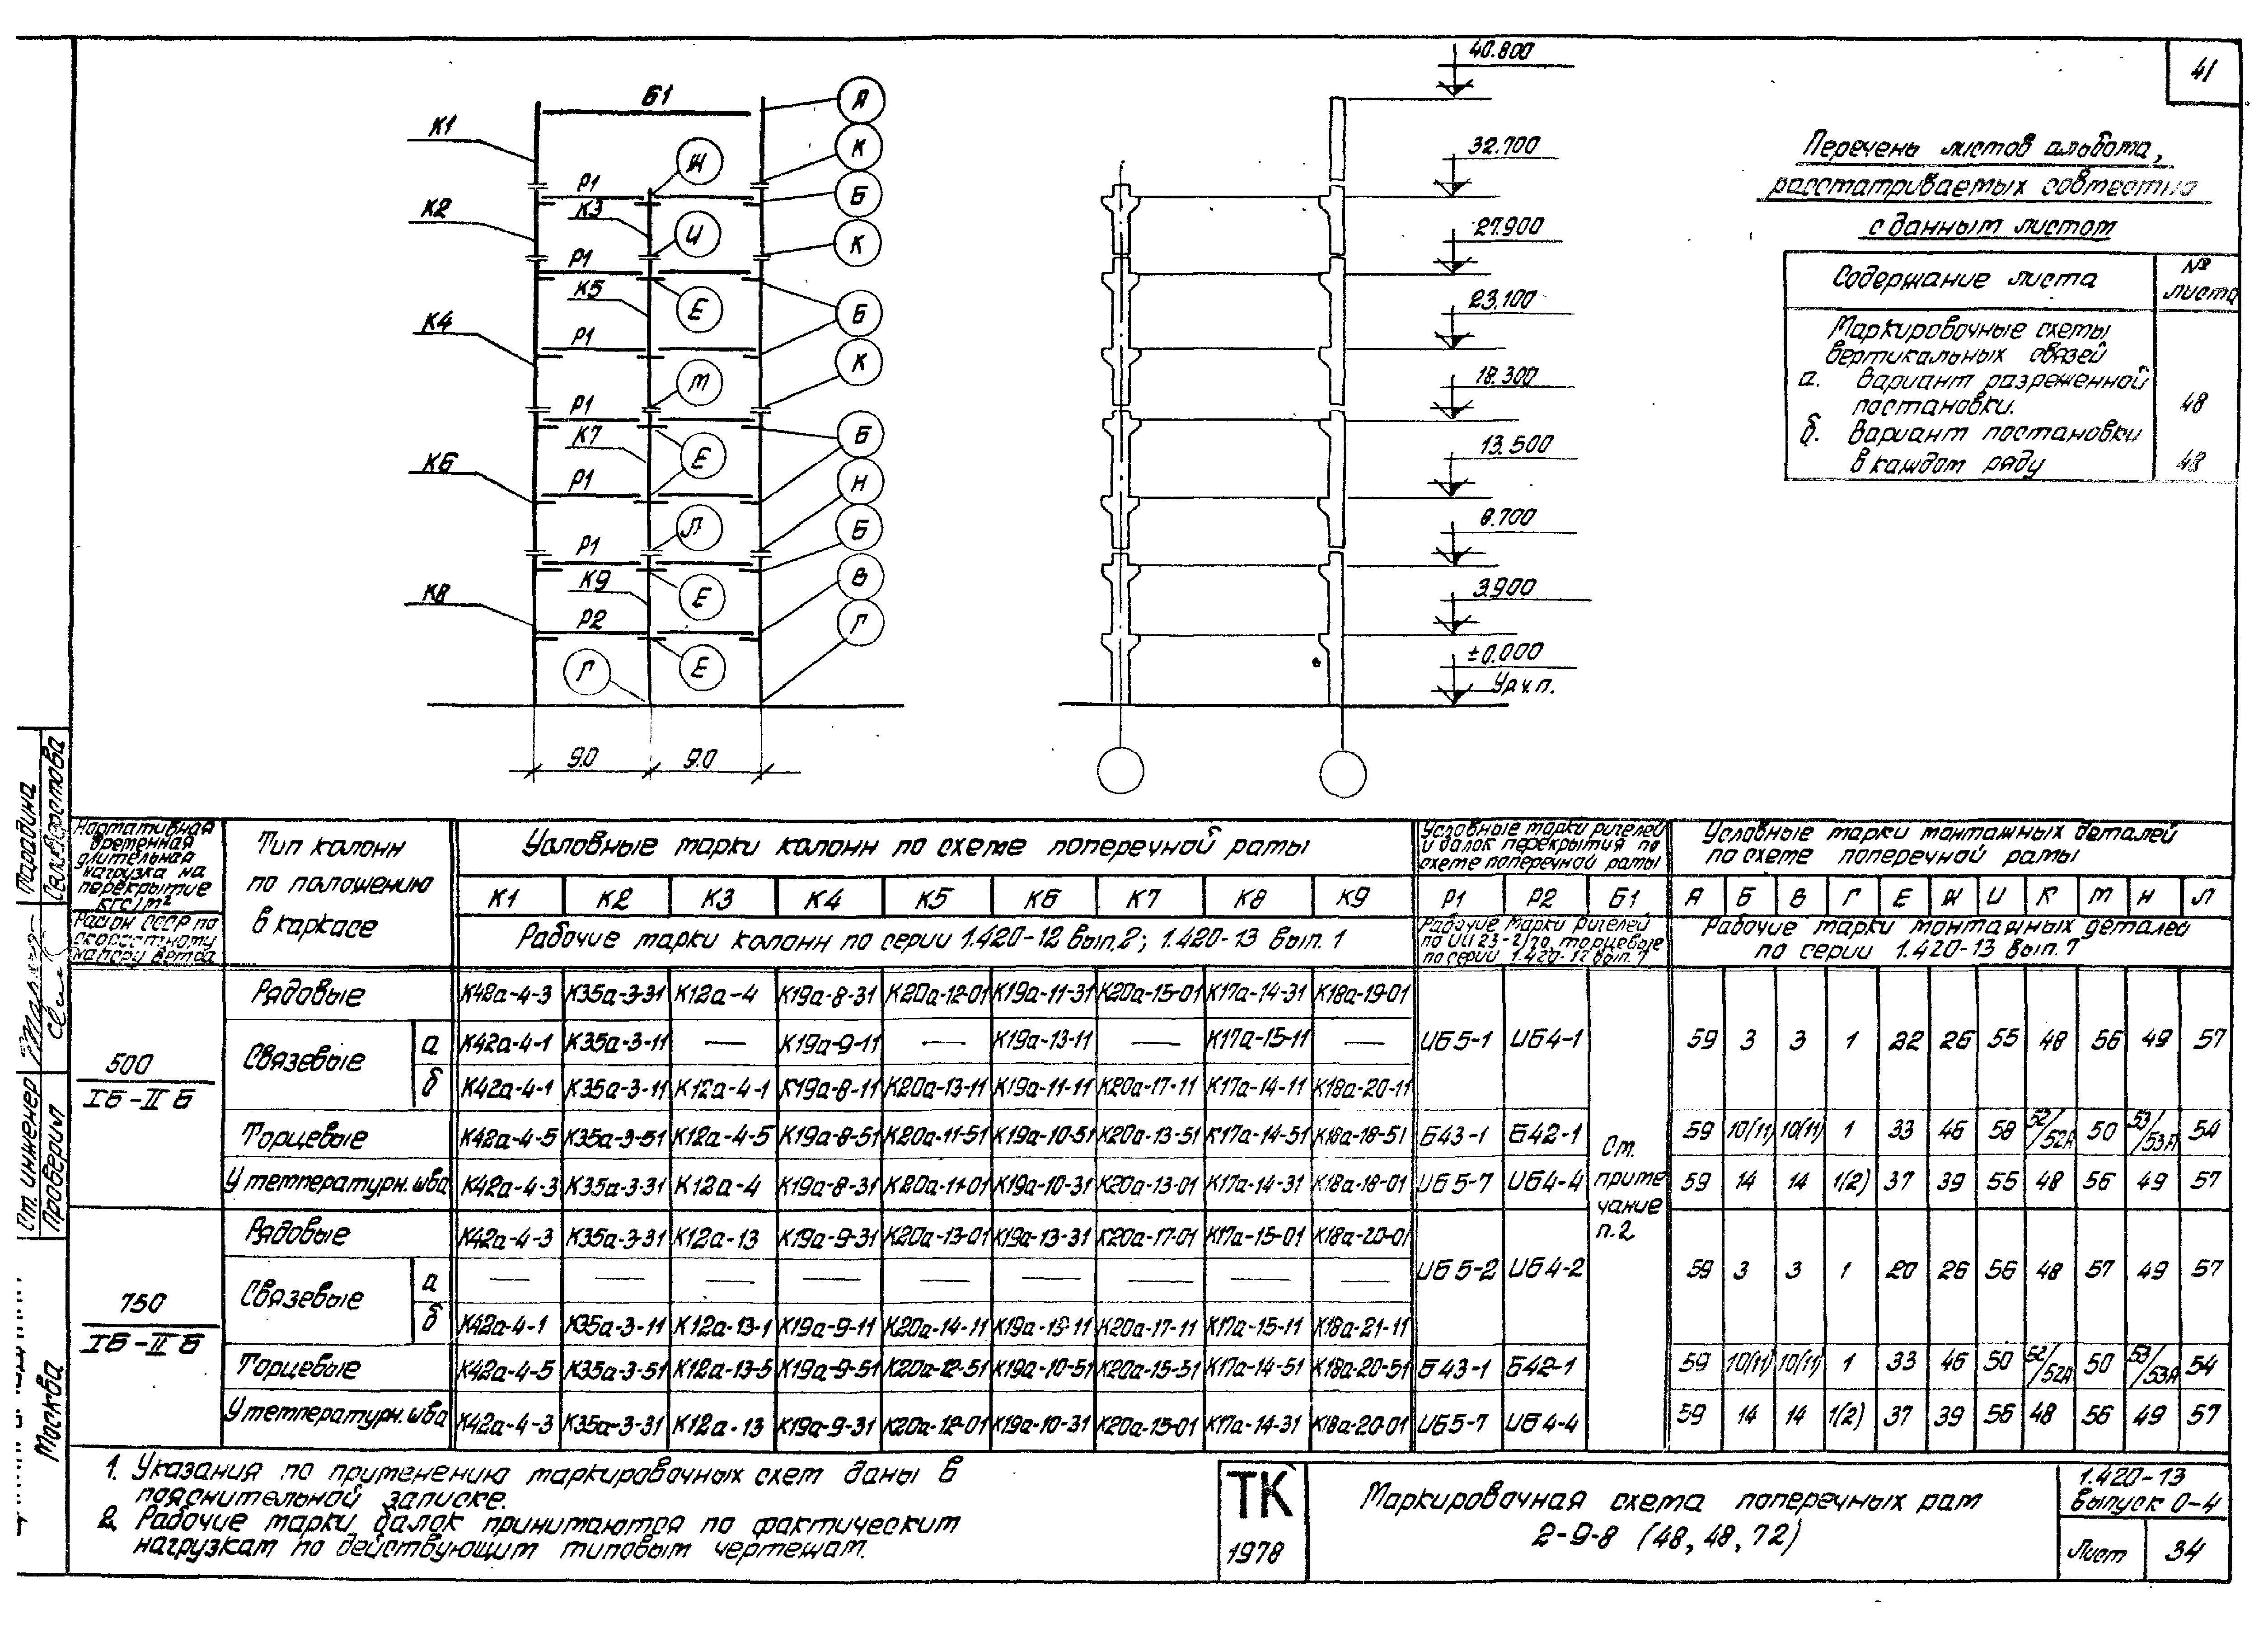 41
Б1
К1
К2
К4
К6
К8
Р1
К3
Р1
К5
Р1
Р1
К7
Р1
Р1
К9
Р2
Ж
И
Е
М
Е
Л
Е
Е
Г
А
К
Б
К
Б
К
Б
Н
Б
В
Г
9.0 9.0
40.800
32.700
27.900
23.100
18.300
13.500
8.700
3.900
±0.000
Ур.ч.п.
Перечень листов альбома,
рассматриваемых совместно
с данным листом
Содержание листа № листа
Маркировочные схемы
вертикальных связей
а. вариант разреженной
постановки. 48
б. вариант постановки
в каждом ряду 48
Ст. инженер Парадина
Проверил Селиверстова
Москва
Нормативная временная длительная нагрузка на перекрытие кгс/м²
Район СССР по скоростному напору ветра
Тип колонн по положению в каркасе
Условные марки колонн по схеме поперечной рамы
Условные марки ригелей и балок перекрытия по схеме поперечной рамы
Условные марки монтажных деталей по схеме поперечной рамы
К1 К2 К3 К4 К5 К6 К7 К8 К9 Р1 Р2 Б1 А Б В Г Е Ж И К М Н Л
Рабочие марки колонн по серии 1.420-12 вып.2; 1.420-13 вып. 1
Рабочие марки ригелей по ИИ23-2/70, торцевые по серии 1.420-12 вып.7
Рабочие марки монтажных деталей по серии 1.420-13 вып. 7
500
IБ-IIБ
Рядовые К42а-4-3 К35а-3-31 К12а-4 К19а-8-31 К20а-12-01 К19а-11-31 К20а-15-01 К17а-14-31 К18а-19-01
Связевые а К42а-4-1 К35а-3-11 — К19а-9-11 — К19а-13-11 — К17а-15-11 — ИБ5-1 ИБ4-1 59 3 3 1 22 26 55 48 56 49 57
б К42а-4-1 К35а-3-11 К12а-4-1 К19а-8-11 К20а-13-11 К19а-11-11 К20а-17-11 К17а-14-11 К18а-20-11
Торцевые К42а-4-5 К35а-3-51 К12а-4-5 К19а-8-51 К20а-11-51 К19а-10-51 К20а-13-51 К17а-14-51 К18а-18-51 Б43-1 Б42-1 59 10(11) 10(11) 1 33 46 58 52/52А 50 53/53А 54
У температурн. шва К42а-4-3 К35а-3-31 К12а-4 К19а-8-31 К20а-11-01 К19а-10-31 К20а-13-01 К17а-14-31 К18а-18-01 ИБ5-7 ИБ4-4 59 14 14 1(2) 37 39 55 48 56 49 57
См. примечание п.2
750
IБ-IIБ
Рядовые К42а-4-3 К35а-3-31 К12а-13 К19а-9-31 К20а-13-01 К19а-13-31 К20а-17-01 К17а-15-01 К18а-20-01
Связевые а — — — — — — — — — ИБ5-2 ИБ4-2 59 3 3 1 20 26 56 48 57 49 57
б К42а-4-1 К35а-3-11 К12а-13-1 К19а-9-11 К20а-14-11 К19а-13-11 К20а-17-11 К17а-15-11 К18а-21-11
Торцевые К42а-4-5 К35а-3-51 К12а-13-5 К19а-9-51 К20а-12-51 К19а-10-51 К20а-15-51 К17а-14-51 К18а-20-51 Б43-1 Б42-1 59 10(11) 10(11) 1 33 46 50 52/52А 50 53/53А 54
У температурн. шва К42а-4-3 К35а-3-31 К12а-13 К19а-9-31 К20а-12-01 К19а-10-31 К20а-15-01 К17а-14-31 К18а-20-01 ИБ5-7 ИБ4-4 59 14 14 1(2) 37 39 56 48 56 49 57
1. Указания по применению маркировочных схем даны в
пояснительной записке.
2. Рабочие марки балок принимаются по фактическим
нагрузкам по действующим типовым чертежам.
ТК
1978
Маркировочная схема поперечных рам
2-9-8 (48, 48, 72)
1.420-13
выпуск 0-4
Лист 34